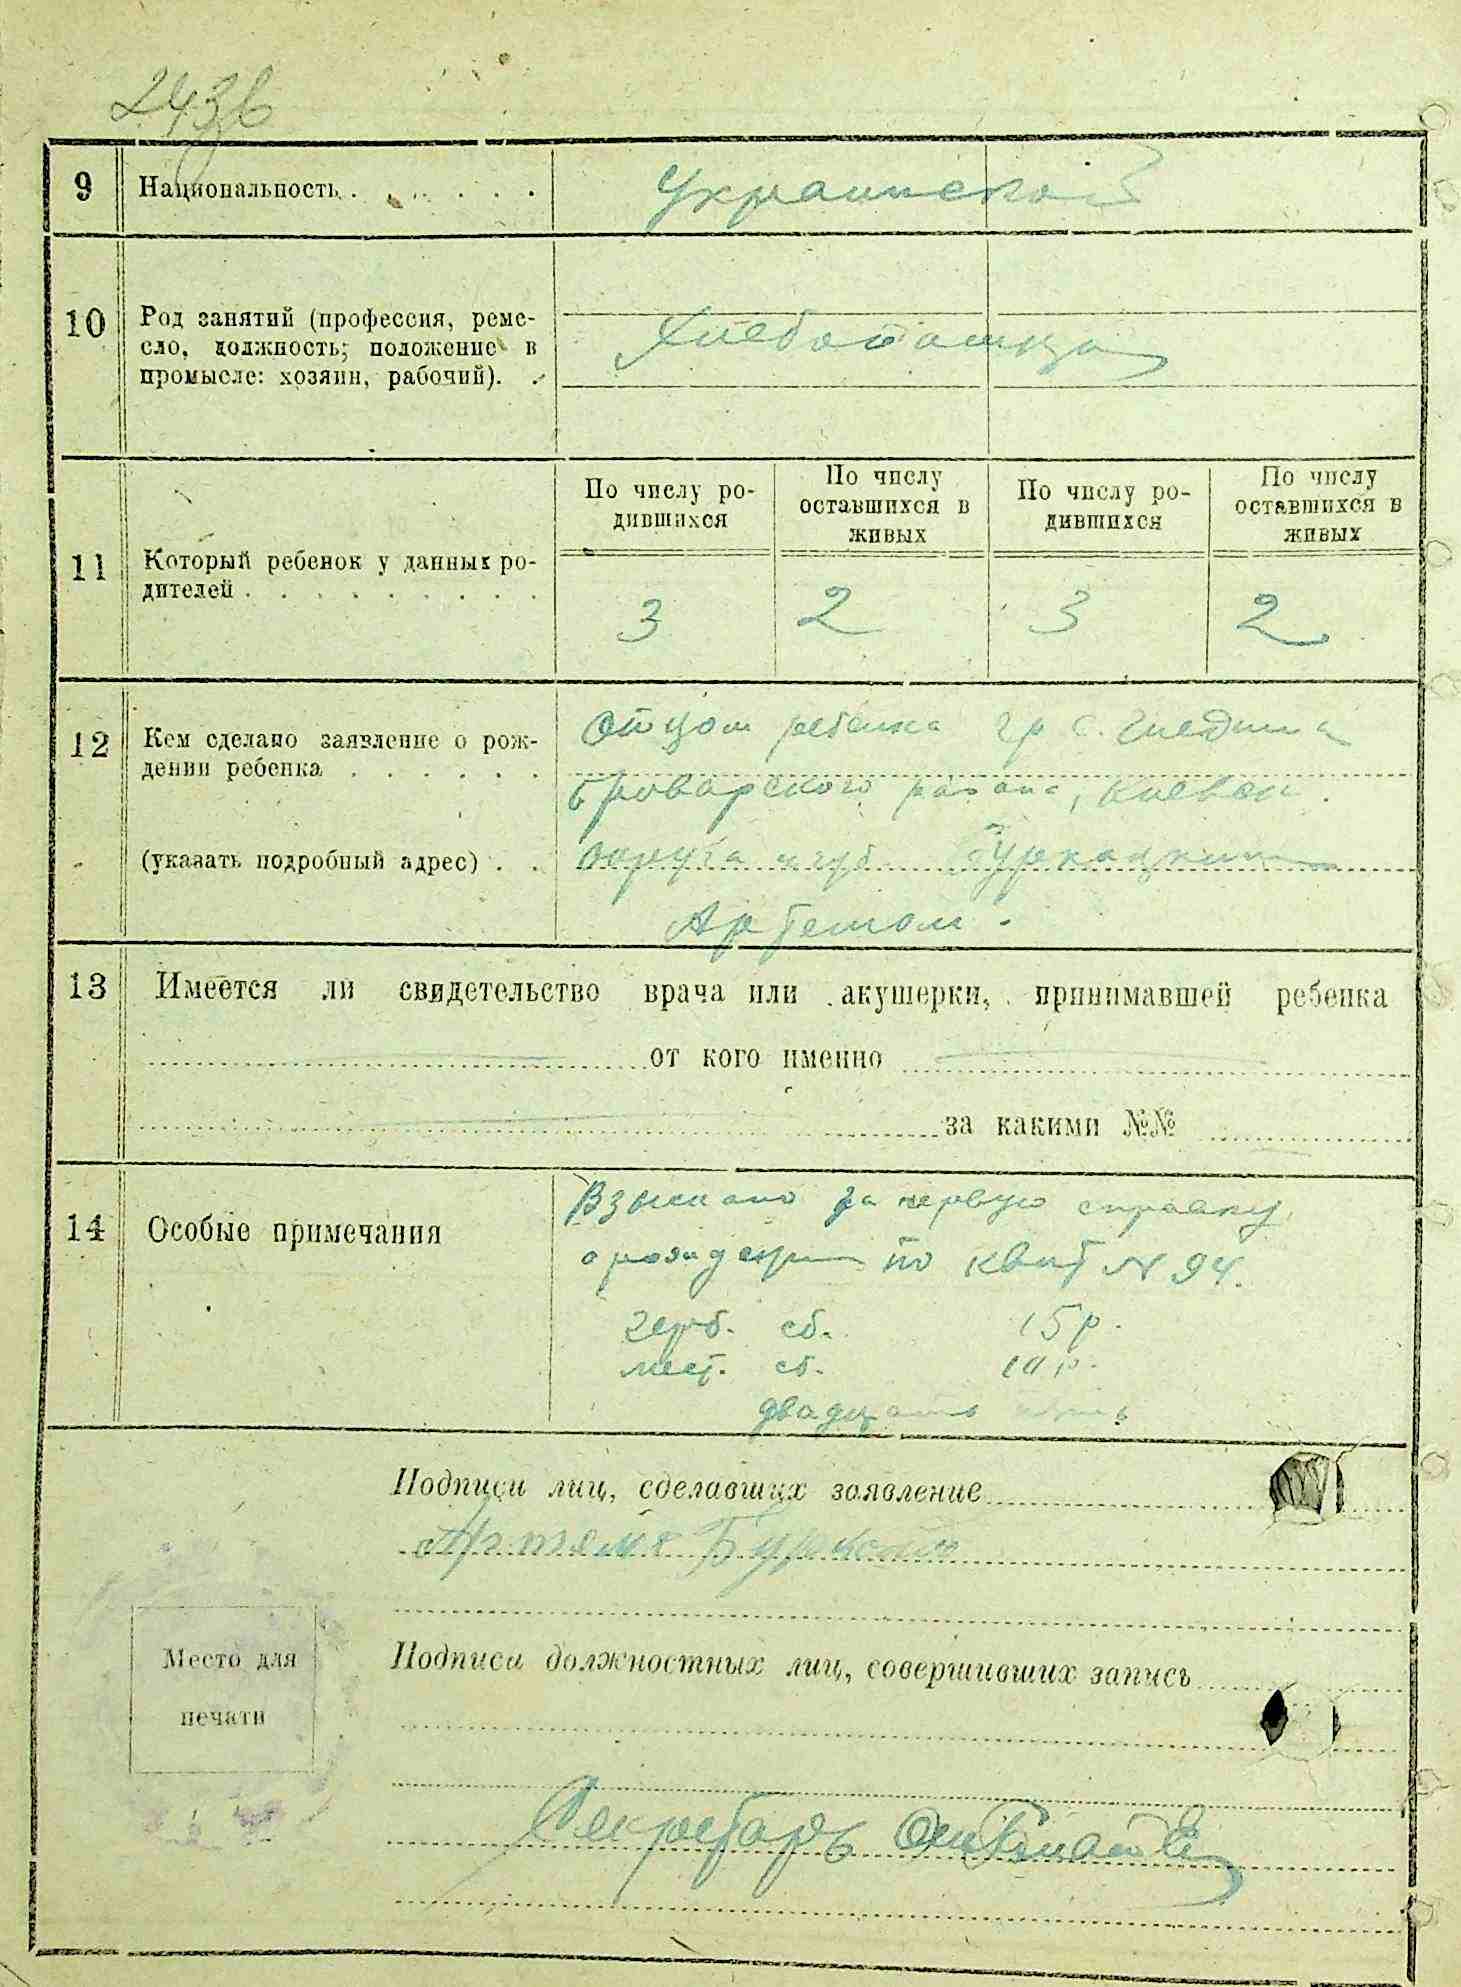 243б
9 Национальность . . . . . . Украинской
10 Род занятий (профессия, реме-
сло, должность; положение в
промысле: хозяин, рабочий). .
Хлебопашцы
По числу ро-
дившихся
По числу
оставшихся в
живых
По числу ро-
дившихся
По числу
оставшихся в
живых
11 Который ребенок у данных ро-
дителей . . . . . . . . .
3 2 3 2
12 Кем сделано заявление о рож-
дении ребенка . . . . . .
(указать подробный адрес) . .
Отцом ребенка гр с. Гнедина
Броварского района, Киевск.
округа и губ.
Артемом.
13 Имеется ли свидетельство врача или акушерки, принимавшей ребенка
от кого именно
за какими №№
14 Особые примечания
Взыскано за первую справку
о рождении по квит N 94.
герб. сб. 15 р.
мест. сб. 10 р.
двадцать пять
Подписи лиц, сделавших заявление
Артем
Место для
печати
Подписи должностных лиц, совершивших запись
Секретарь